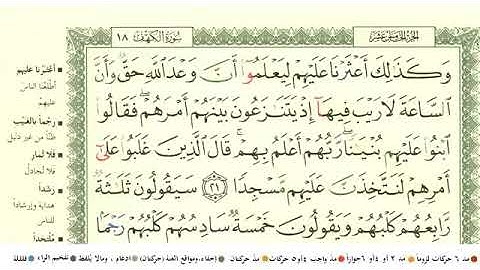 سورة الكهف ١٨
الجزء الخامس عشر
وَكَذَٰلِكَ أَعْثَرْنَا عَلَيْهِمْ لِيَعْلَمُوٓا۟ أَنَّ وَعْدَ ٱللَّهِ حَقٌّ وَأَنَّ
ٱلسَّاعَةَ لَا رَيْبَ فِيهَآ إِذْ يَتَنَٰزَعُونَ بَيْنَهُمْ أَمْرَهُمْ ۖ فَقَالُوا۟
ٱبْنُوا۟ عَلَيْهِم بُنْيَٰنًا ۖ رَّبُّهُمْ أَعْلَمُ بِهِمْ ۚ قَالَ ٱلَّذِينَ غَلَبُوا۟ عَلَىٰٓ
أَمْرِهِمْ لَنَتَّخِذَنَّ عَلَيْهِم مَّسْجِدًا ٢١ سَيَقُولُونَ ثَلَٰثَةٌ
رَّابِعُهُمْ كَلْبُهُمْ وَيَقُولُونَ خَمْسَةٌ سَادِسُهُمْ كَلْبُهُمْ رَجْمًۢا
أعثرنا عليهم
أطلعنا الناس
عليهم
رجما بالغيب
ظنا من غير دليل
فلا تمار
فلا تجادل
رشدا
هداية وإرشادا
للناس
ملتحدا
مد ٦ حركات لزوما مد ٢ أو ٤ أو ٦ جوازا مد واجب ٤ أو ٥ حركات مد حركتان إخفاء، ومواقع الغنة (حركتان) ادغام، وما لا يلفظ تفخيم الراء قلقلة